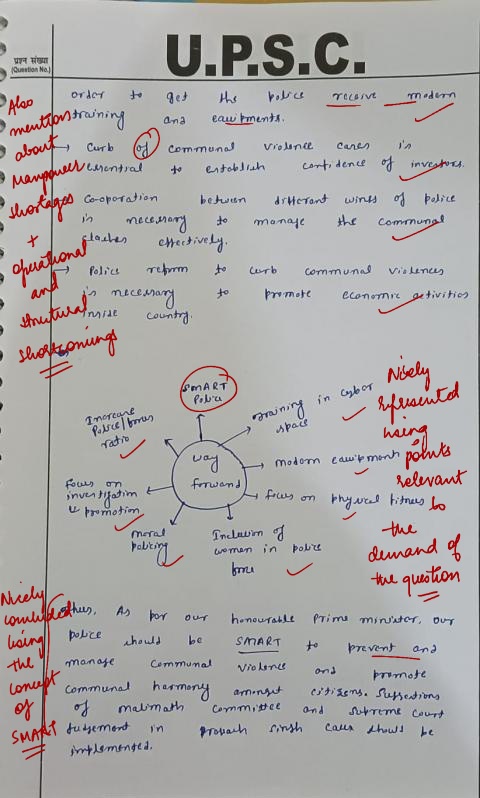 U.P.S.C.
प्रश्न संख्या
(Question No.)
order to get the police receive modern
training and equipments.
→ Curb of communal violence cases is
essential to establish confidence of investors.
Co-operation between different wings of police
is necessary to manage the communal
clashes effectively.
→ Police reform to curb communal violences
is necessary to promote economic activities
inside country.
Also
mentions
about
Manpower
shortages
+
operational
and
structural
shortcomings
SMART
Police
Increase
Police/forces
ratio
Training in cyber
space
way
forward
modern equipment
focus on physical fitness
focus on
investigation
& promotion
moral
policing
Inclusion of
women in police
force
Nicely
represented
using
points
relevant
to
the
demand of
the question
Nicely
concluded
using
the
concept
of
SMART
others. As per our honourable Prime minister, our
police should be SMART to prevent and
manage communal violence and promote
communal harmony amongst citizens. Suggestions
of malimath committee and supreme court
Judgement in prakash singh case should be
implemented.